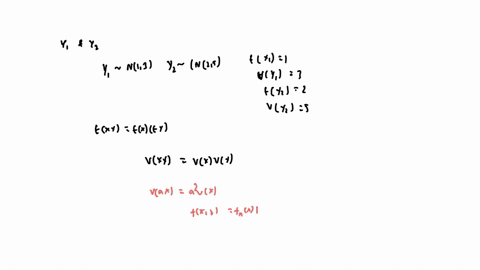 Y₁ & Y₂
Y₁ ~ N(1,3) Y₂ ~ (N(2,5)
E(Y₁) = 1
V(Y₁) = 3
E(Y₂) = 2
V(Y₂) = 5
E(XY) = E(X)(EY)
V(XY) = V(X)V(Y)
V(aX) = a²V(X)